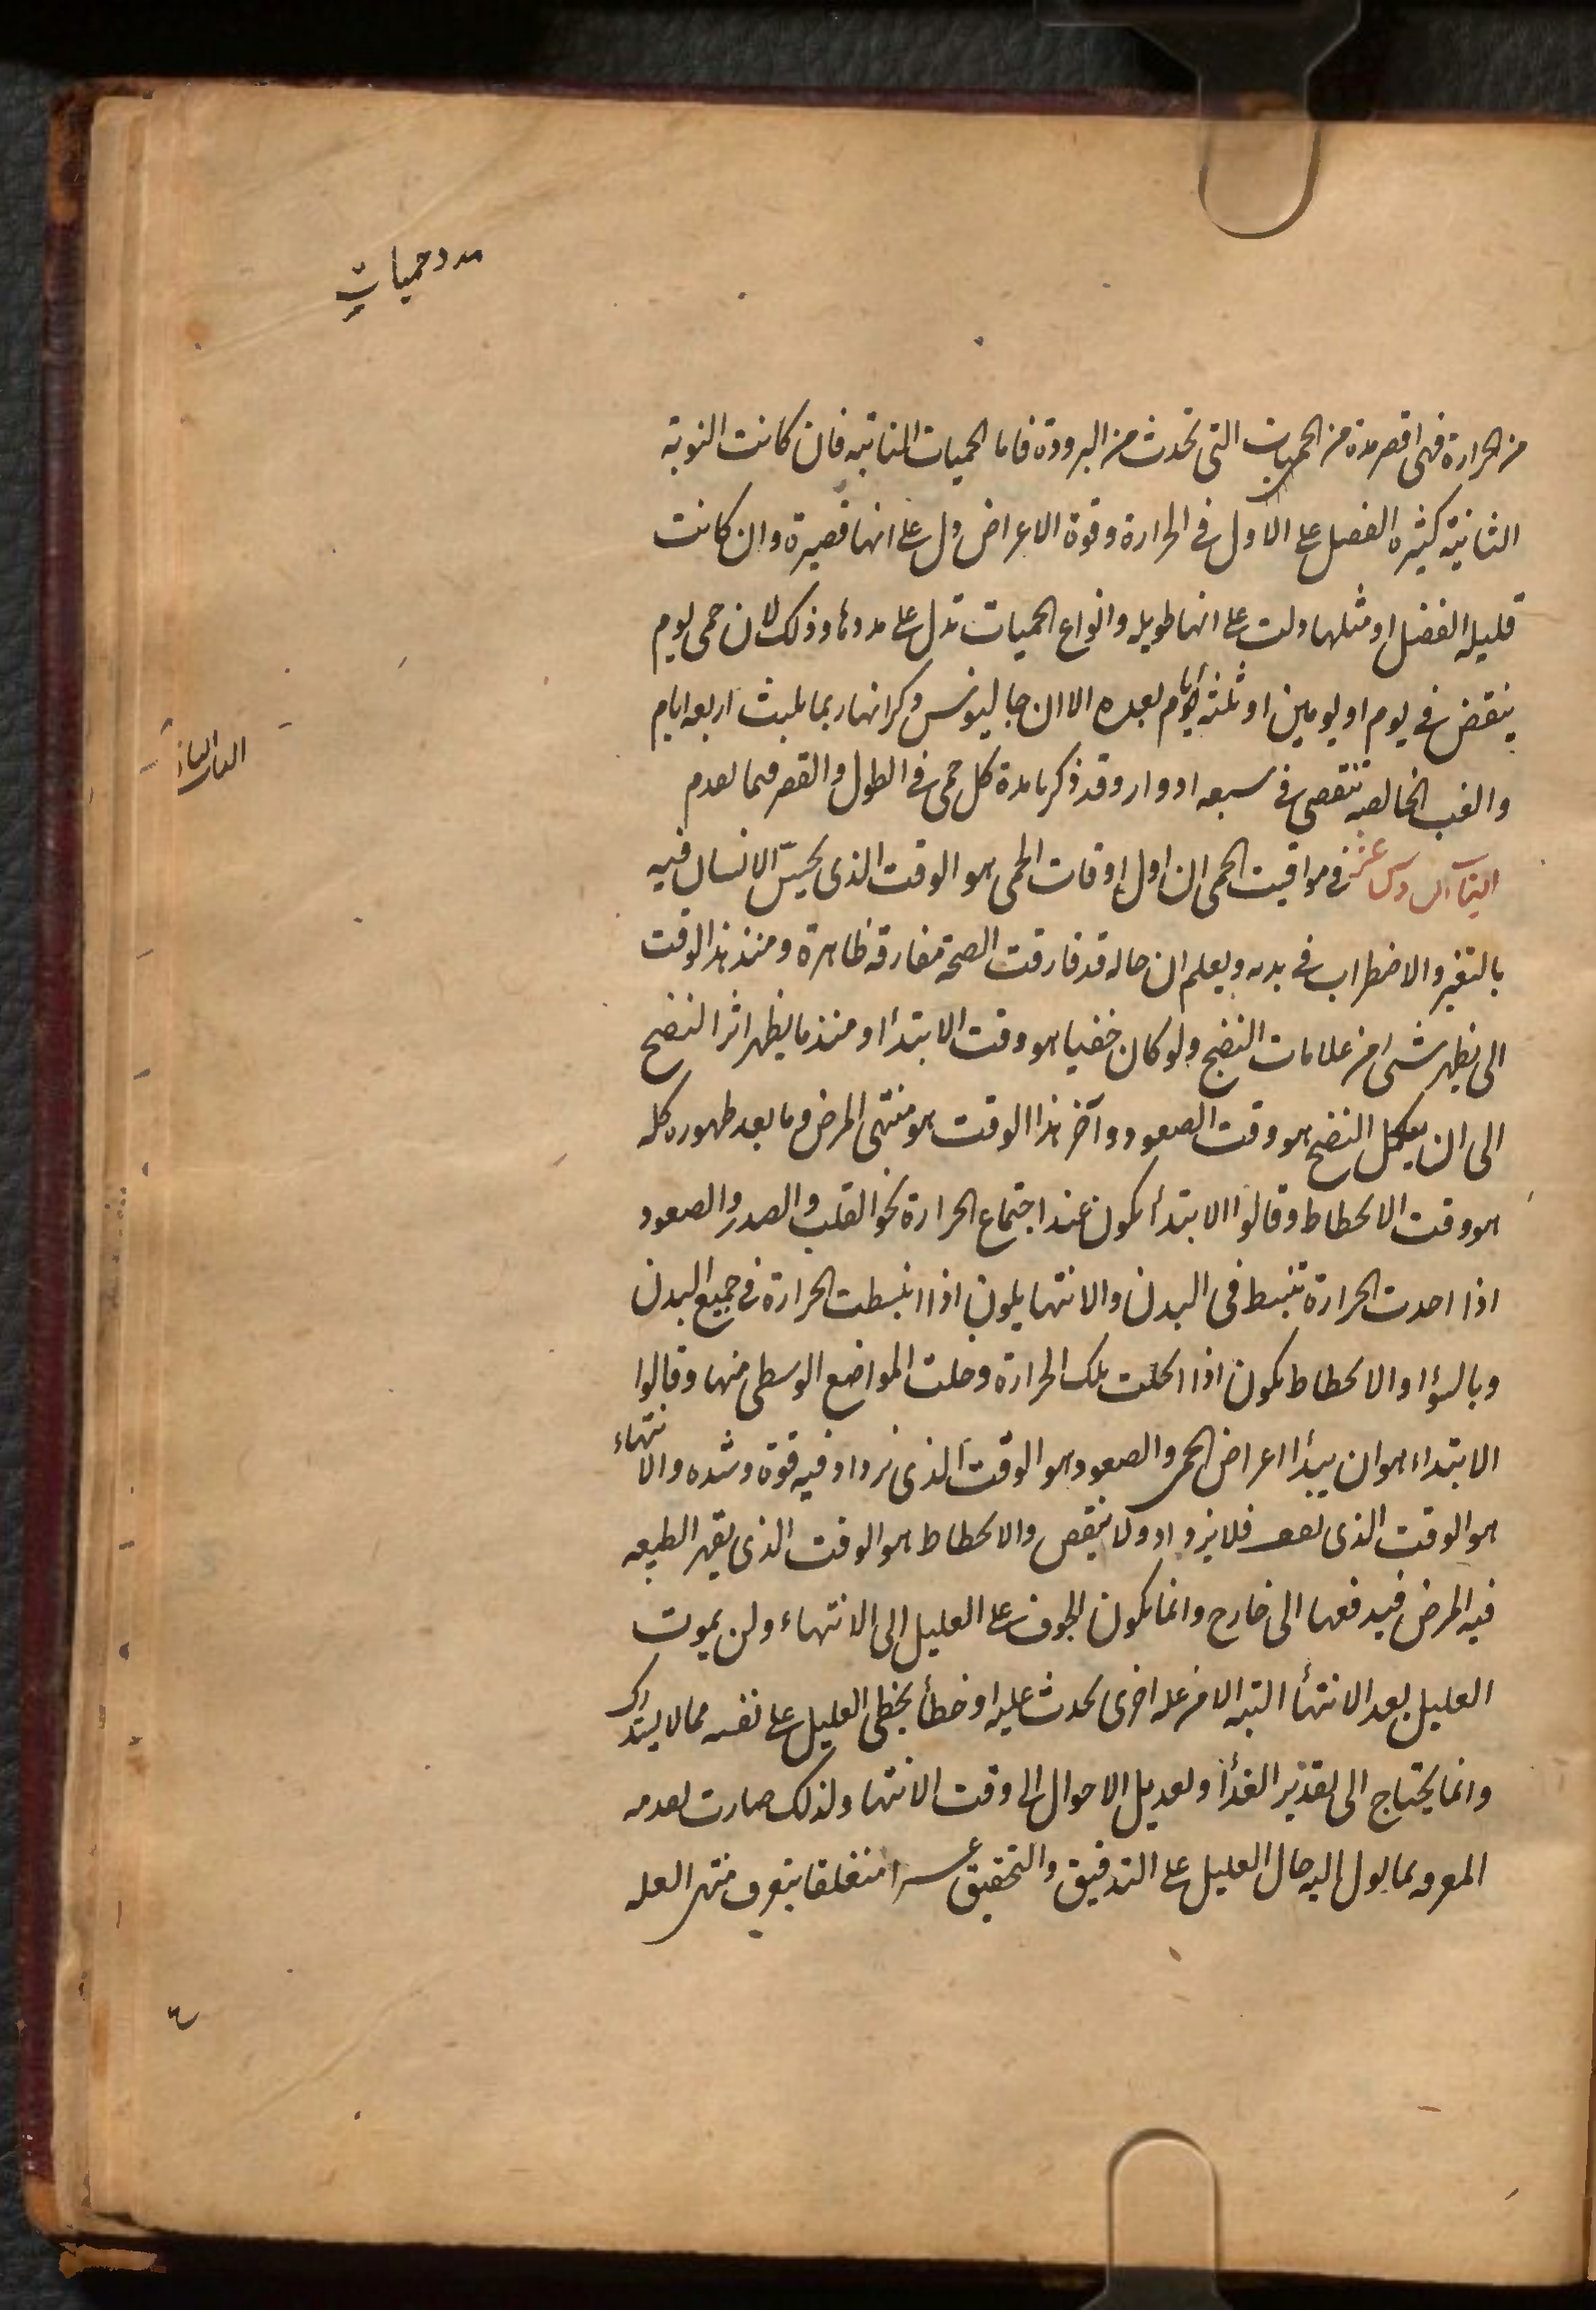 مدد حميات
من الحرارة فهى اقصر مدة من الحميات التى تحدث من البرودة فاما الحميات النائبه فان كانت النوبة
الثانية كثيره الفضل على الاول فى الحرارة وقوة الاعراض دل على انها قصيرة وان كانت
قليله الفضل او مثلها دلت على انها طويله وانواع الحميات تدل على مددها وذلك لان حمى يوم
ينقض فى يوم او يومين او ثلثة ايام بعده الا ان جالينوس ذكر انها ربما يلبث اربعه ايام
والغب الخالصه تنقصى فى سبعه ادوار وقد ذكرنا مدة كل حمى فى الطول والقصر فيما تقدم
فى مواقيت الحمى ان اول اوقات الحمى هو الوقت الذى يحسّ الانسان فيه
بالتغير والاضطراب فى بدنه ويعلم ان حاله قد فارقت الصحة مفارقه ظاهرة ومنذ هذا الوقت
الى يظهر شىء من علامات النضج ولو كان خفيا هو وقت الابتدأ ومنذ ما يظهر اثر النضج
الى ان يكمل النضج هو وقت الصعود وآخر هذا الوقت هو منتهى المرض وما بعد ظهوره كله
هو وقت الانحطاط وقالوا الابتدأ يكون عند اجتماع الحرارة نحو القلب والصدر والصعود
اذا اخذت الحرارة تنبسط فى البدن والانتها يكون اذا انبسطت الحرارة فى جميع البدن
وبالسوا والانحطاط يكون اذا انحلت تلك الحرارة وخلت المواضع الوسطى منها وقالوا
الابتداء هو ان يبدأ اعراض الحمى والصعود هو الوقت الذى يزداد فيه قوة وشده والانتهاء
هو الوقت الذى يقف فلا يزداد ولا ينقص والانحطاط هو الوقت الذى يقهر الطبيعه
فيه المرض فيدفعها الى خارج وانما يكون الخوف على العليل الى الانتهاء ولن يموت
العليل بعد الانتهأ البته الا من عله اخرى تحدث عليه او خطأ يخطى العليل على نفسه مما لا يتدارك
وانما يحتاج الى تقدير الغذأ وتعديل الاحوال الى وقت الانتها ولذلك صارت تقدمه
المعرفه بما يول اليه حال العليل على التدقيق والتحقيق عسرا منغلقا بتعرف منتهى العله